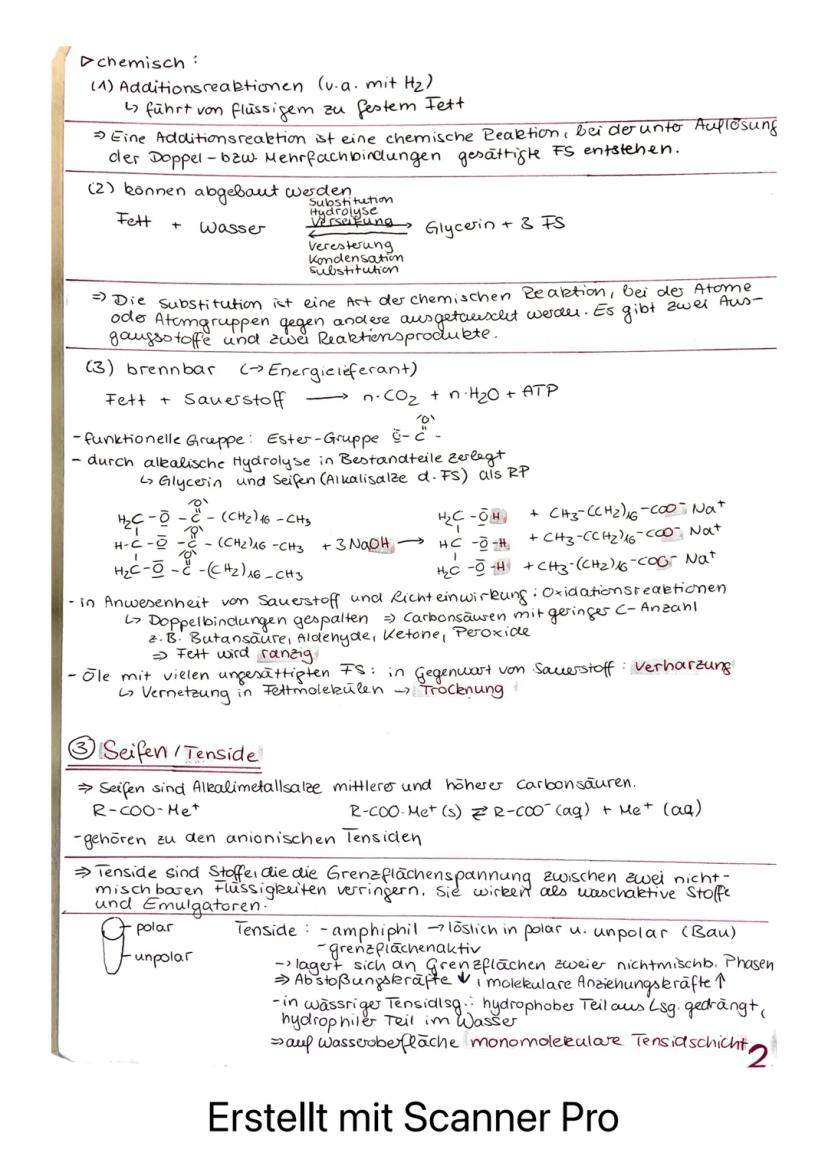 ▷chemisch :
(1) Additionsreaktionen (v.a. mit H₂)
↳ führt von flüssigem zu festem Fett
⇒ Eine Additionsreaktion ist eine chemische Reaktion, bei der unter Auflösung
der Doppel- bzw. Mehrfachbindungen gesättigte FS entstehen.
(2) können abgebaut werden
Substitution
Hydrolyse
Verseifung
Fett + Wasser ⇄ Glycerin + 3 FS
Veresterung
Kondensation
Substitution
⇒ Die Substitution ist eine Art der chemischen Reaktion, bei der Atome
oder Atomgruppen gegen andere ausgetauscht werden. Es gibt zwei Aus-
gangsstoffe und zwei Reaktionsprodukte.
(3) brennbar (→ Energielieferant)
Fett + Sauerstoff → n·CO₂ + n·H₂O + ATP
- funktionelle Gruppe: Ester-Gruppe C̄-C-
O
- durch alkalische Hydrolyse in Bestandteile zerlegt
↳ Glycerin und Seifen (Alkalisalze d. FS) als RP
H₂C-O-C-(CH₂)₁₆-CH₃ H₂C-OH + CH₃-(CH₂)₁₆-COO⁻ Na⁺
H-C-O-C-(CH₂)₁₆-CH₃ + 3 NaOH → HC-O-H + CH₃-(CH₂)₁₆-COO⁻ Na⁺
H₂C-O-C-(CH₂)₁₆-CH₃ H₂C-O-H + CH₃-(CH₂)₁₆-COO⁻ Na⁺
- in Anwesenheit von Sauerstoff und Lichteinwirkung: Oxidationsreaktionen
↳ Doppelbindungen gespalten ⇒ Carbonsäuren mit geringer C-Anzahl
z.B. Butansäure, Aldehyde, Ketone, Peroxide
⇒ Fett wird ranzig
- Öle mit vielen ungesättigten FS: in Gegenwart von Sauerstoff: Verharzung
↳ Vernetzung in Fettmolekülen → Trocknung
③ Seifen / Tenside
⇒ Seifen sind Alkalimetallsalze mittlerer und höherer Carbonsäuren.
R-COO-Me⁺ R-COO-Me⁺ (s) ⇄ R-COO⁻ (aq) + Me⁺ (aq)
-gehören zu den anionischen Tensiden
⇒ Tenside sind Stoffe, die die Grenzflächenspannung zwischen zwei nicht-
mischbaren Flüssigkeiten verringern. Sie wirken als waschaktive Stoffe
und Emulgatoren.
polar
unpolar
Tenside : - amphiphil → löslich in polar u. unpolar (Bau)
-grenzflächenaktiv
→ lagert sich an Grenzflächen zweier nichtmischb. Phasen
⇒ Abstoßungskräfte ↓, molekulare Anziehungskräfte ↑
- in wässriger Tensidlsg.: hydrophober Teil aus Lsg. gedrängt,
hydrophiler Teil im Wasser
⇒ auf Wasseroberfläche monomolekulare Tensidschicht
2
Erstellt mit Scanner Pro